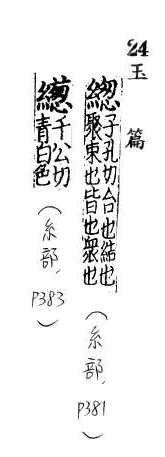 24
玉篇
緫 子孔切合也結也
聚束也皆也衆也
(糸部,
P381
)
繱 千公切
青白色
(糸部,
P383
)